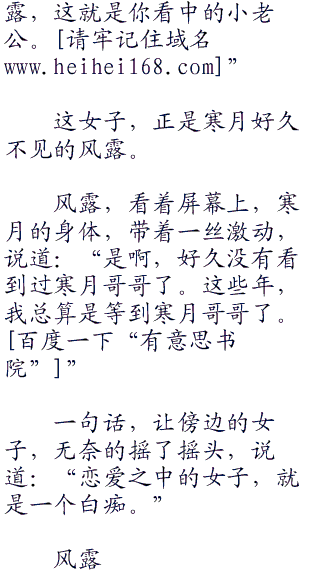 露，这就是你看中的小老
公。[请牢记住域名
www.heihei168.com]”
这女子，正是寒月好久
不见的风露。
风露，看着屏幕上，寒
月的身体，带着一丝激动，
说道：“是啊，好久没有看
到过寒月哥哥了。这些年，
我总算是等到寒月哥哥了。
[百度一下“有意思书
院”]”
一句话，让傍边的女
子，无奈的摇了摇头，说
道：“恋爱之中的女子，就
是一个白痴。”
风露